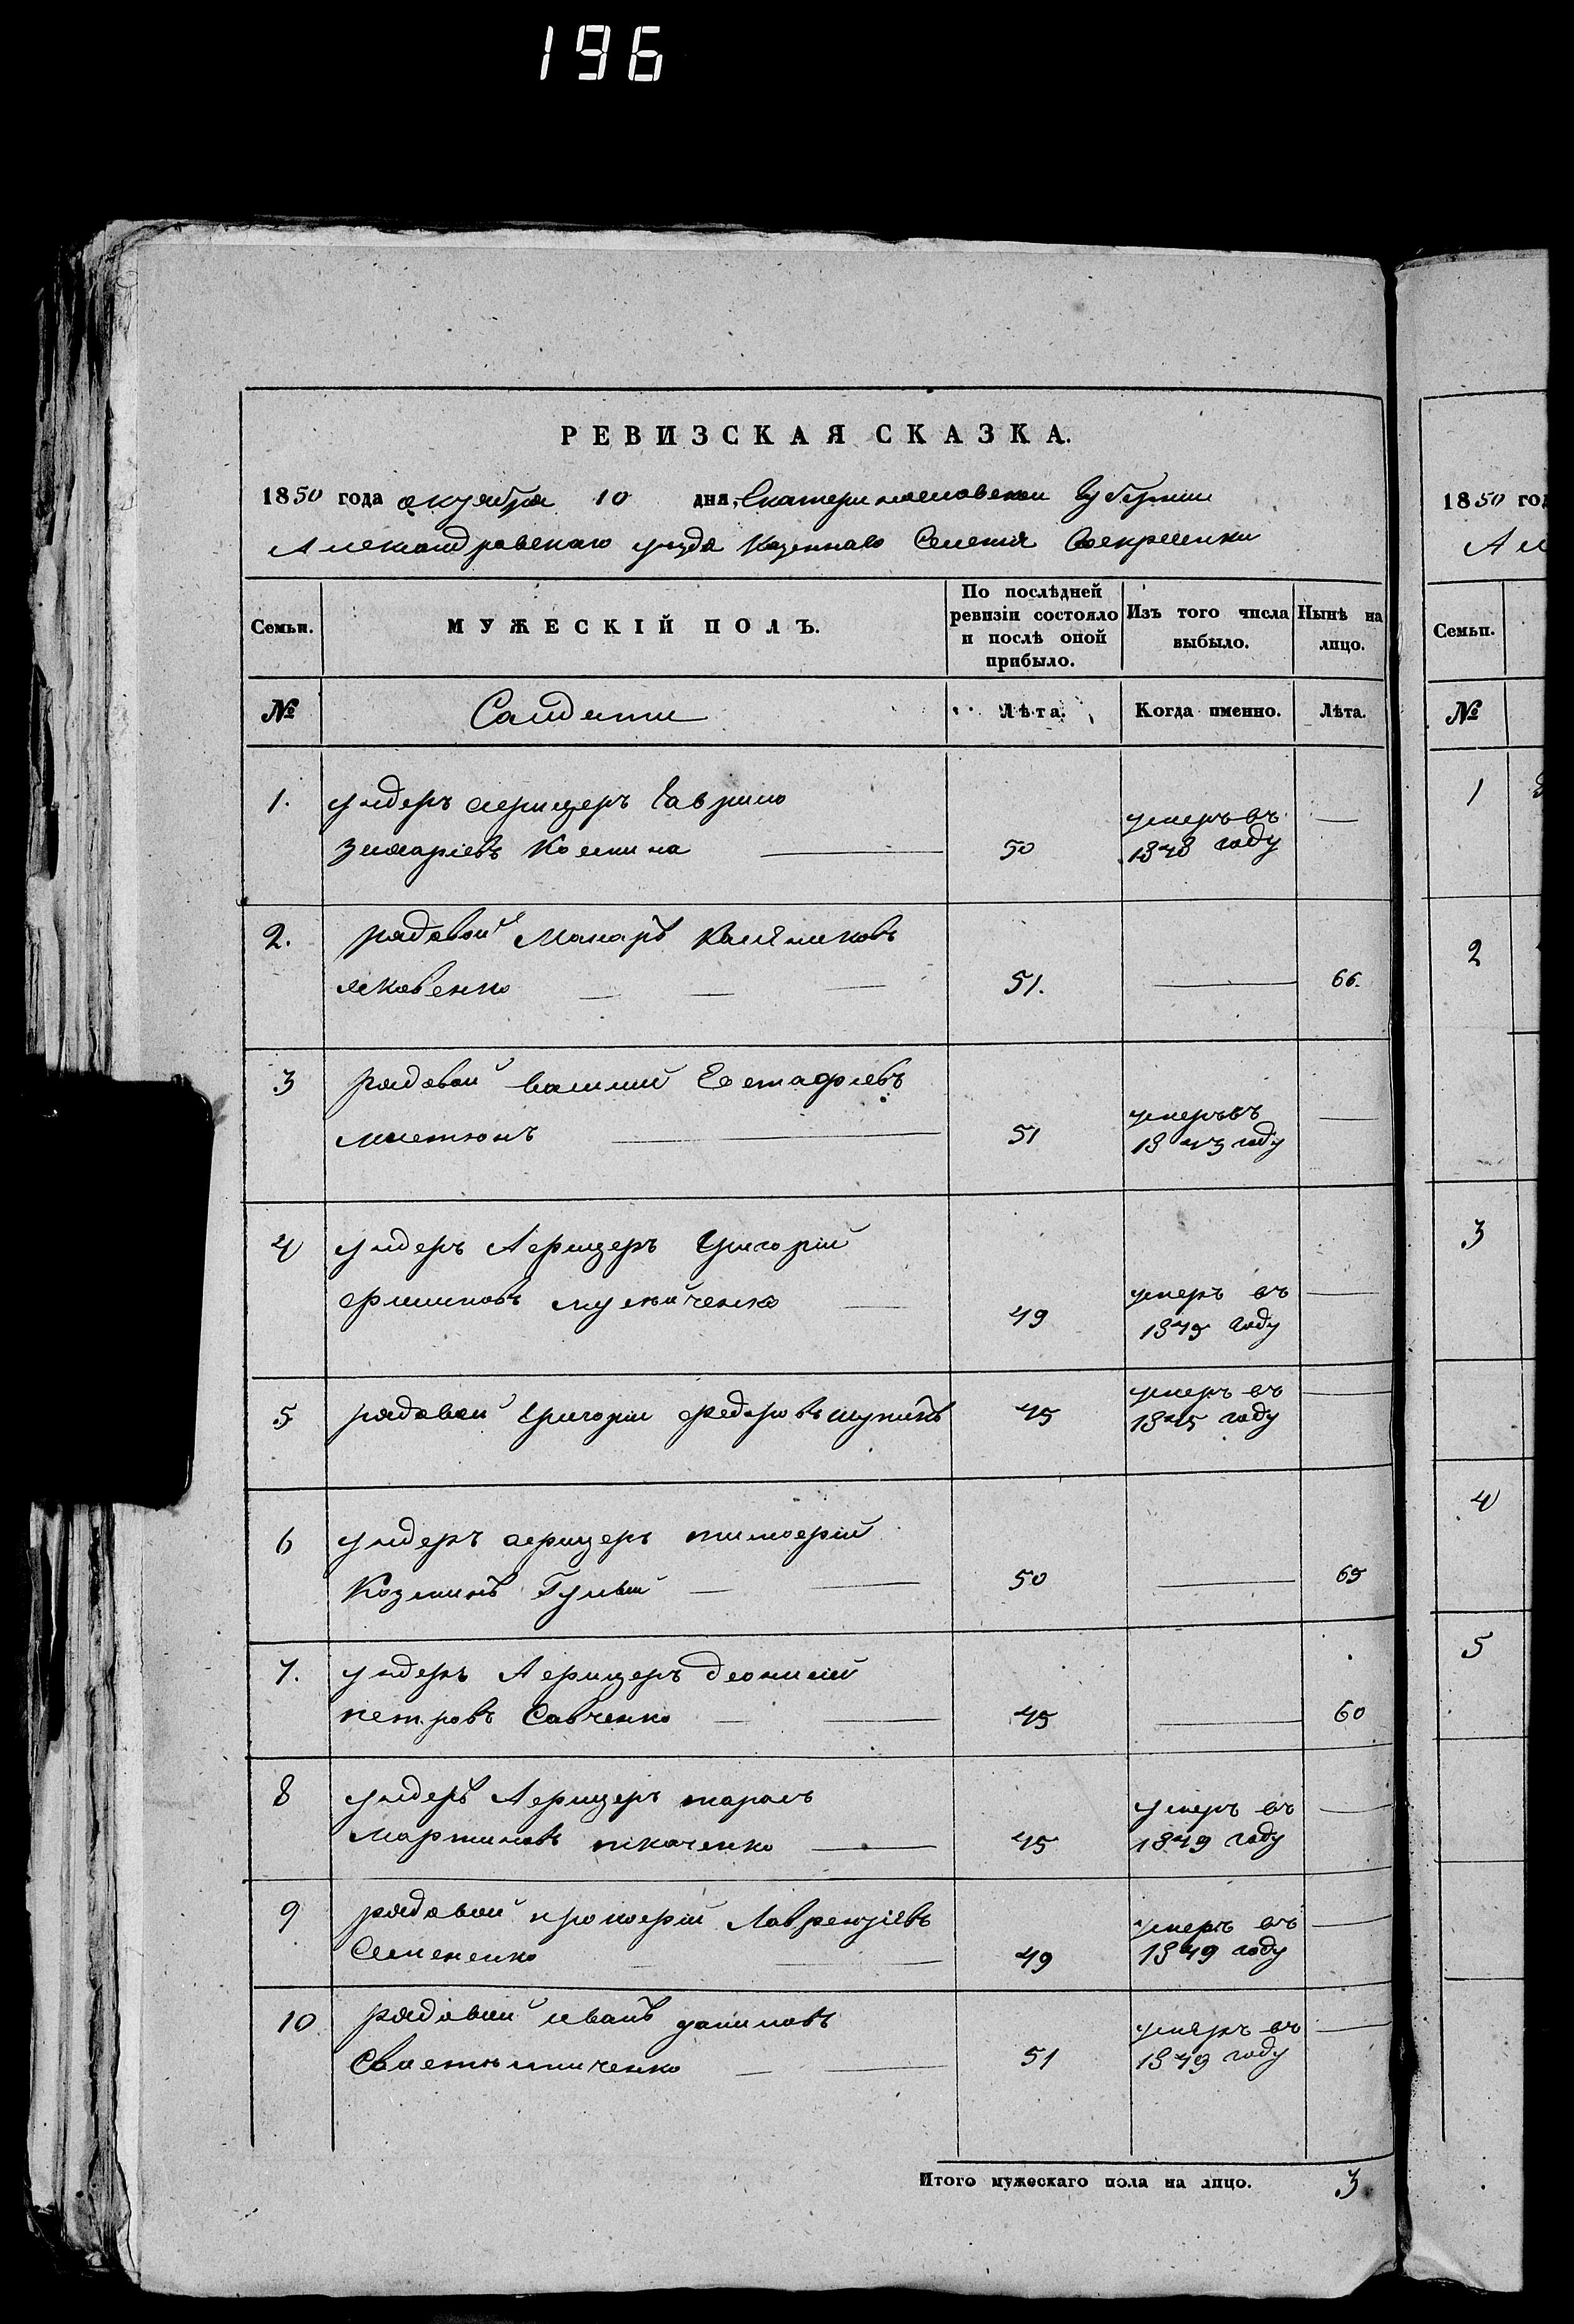 196
РЕВИЗСКАЯ СКАЗКА.
1850 года октября 10 дня, Екатеринославской Губернии
Александровскаго уезда Казеннаго Селенія Воскресенки
Семьи.
МУЖЕСКІЙ ПОЛЪ.
По послѣдней ревизіи состояло и послѣ оной прибыло.
Изъ того числа выбыло.
Нынѣ на лицо.
№
Салдати
Лѣта.
Когда именно.
Лѣта.
1. ундеръ аеръ офицеръ Гаврило
Костина 50 умеръ въ 1848 году —
2. рядовой Макаръ
яковенко 51. — 66.
3 рядовой василий Евстафиевъ
51 умеръ въ 1843 году —
4 ундеръ Афицеръ Григорій
филиповъ 49 умеръ въ 1845 году —
5 рядовой Григорій федоровъ 45 умеръ въ 1845 году —
6 ундеръ афицеръ тимофей
Козминъ Гулый 50 — 65
7. ундеръ Афицеръ деонисій
петровъ Савченко 45 — 60
8 ундеръ Афицеръ тарасъ
Мартиновъ ткаченко 45 умеръ въ 1849 году —
9 рядовой прокофій Лаврентіевъ
Семененко 49 умеръ въ 1849 году —
10 рядовой иванъ даниловъ
51 умеръ въ 1849 году —
Итого мужескаго пола на лицо. 3
1850 год
Ал
Семьи.
№
1
2
3
4
5